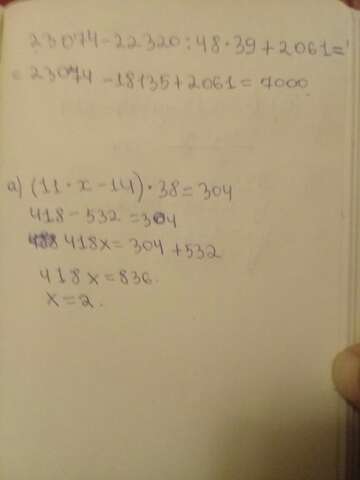 23074-22320:48·39+2061=
= 23074-18135+2061=7000
a) (11·x-14)·38=304
418-532=304
418x=304+532
418x=836.
x=2.